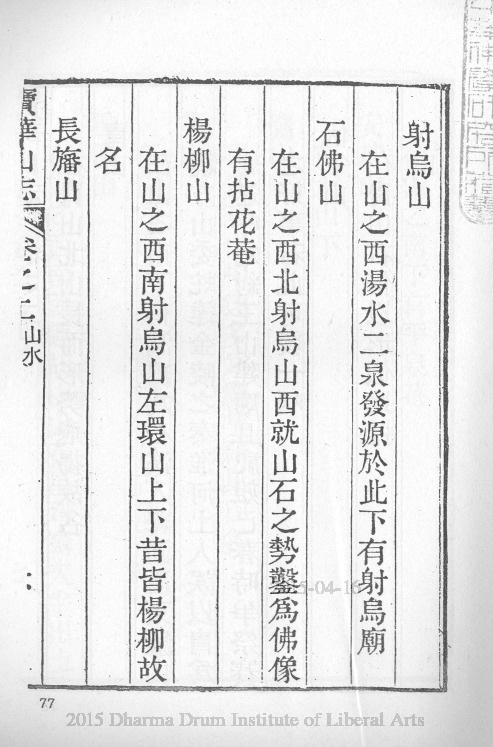 射烏山
在山之西湯水二泉發源於此下有射烏廟
石佛山
在山之西北射烏山西就山石之勢鑿爲佛像
有拈花菴
楊柳山
在山之西南射烏山左環山上下昔皆楊柳故
名
長旛山
寶華山志 卷之二 山水
77
2015 Dharma Drum Institute of Liberal Arts